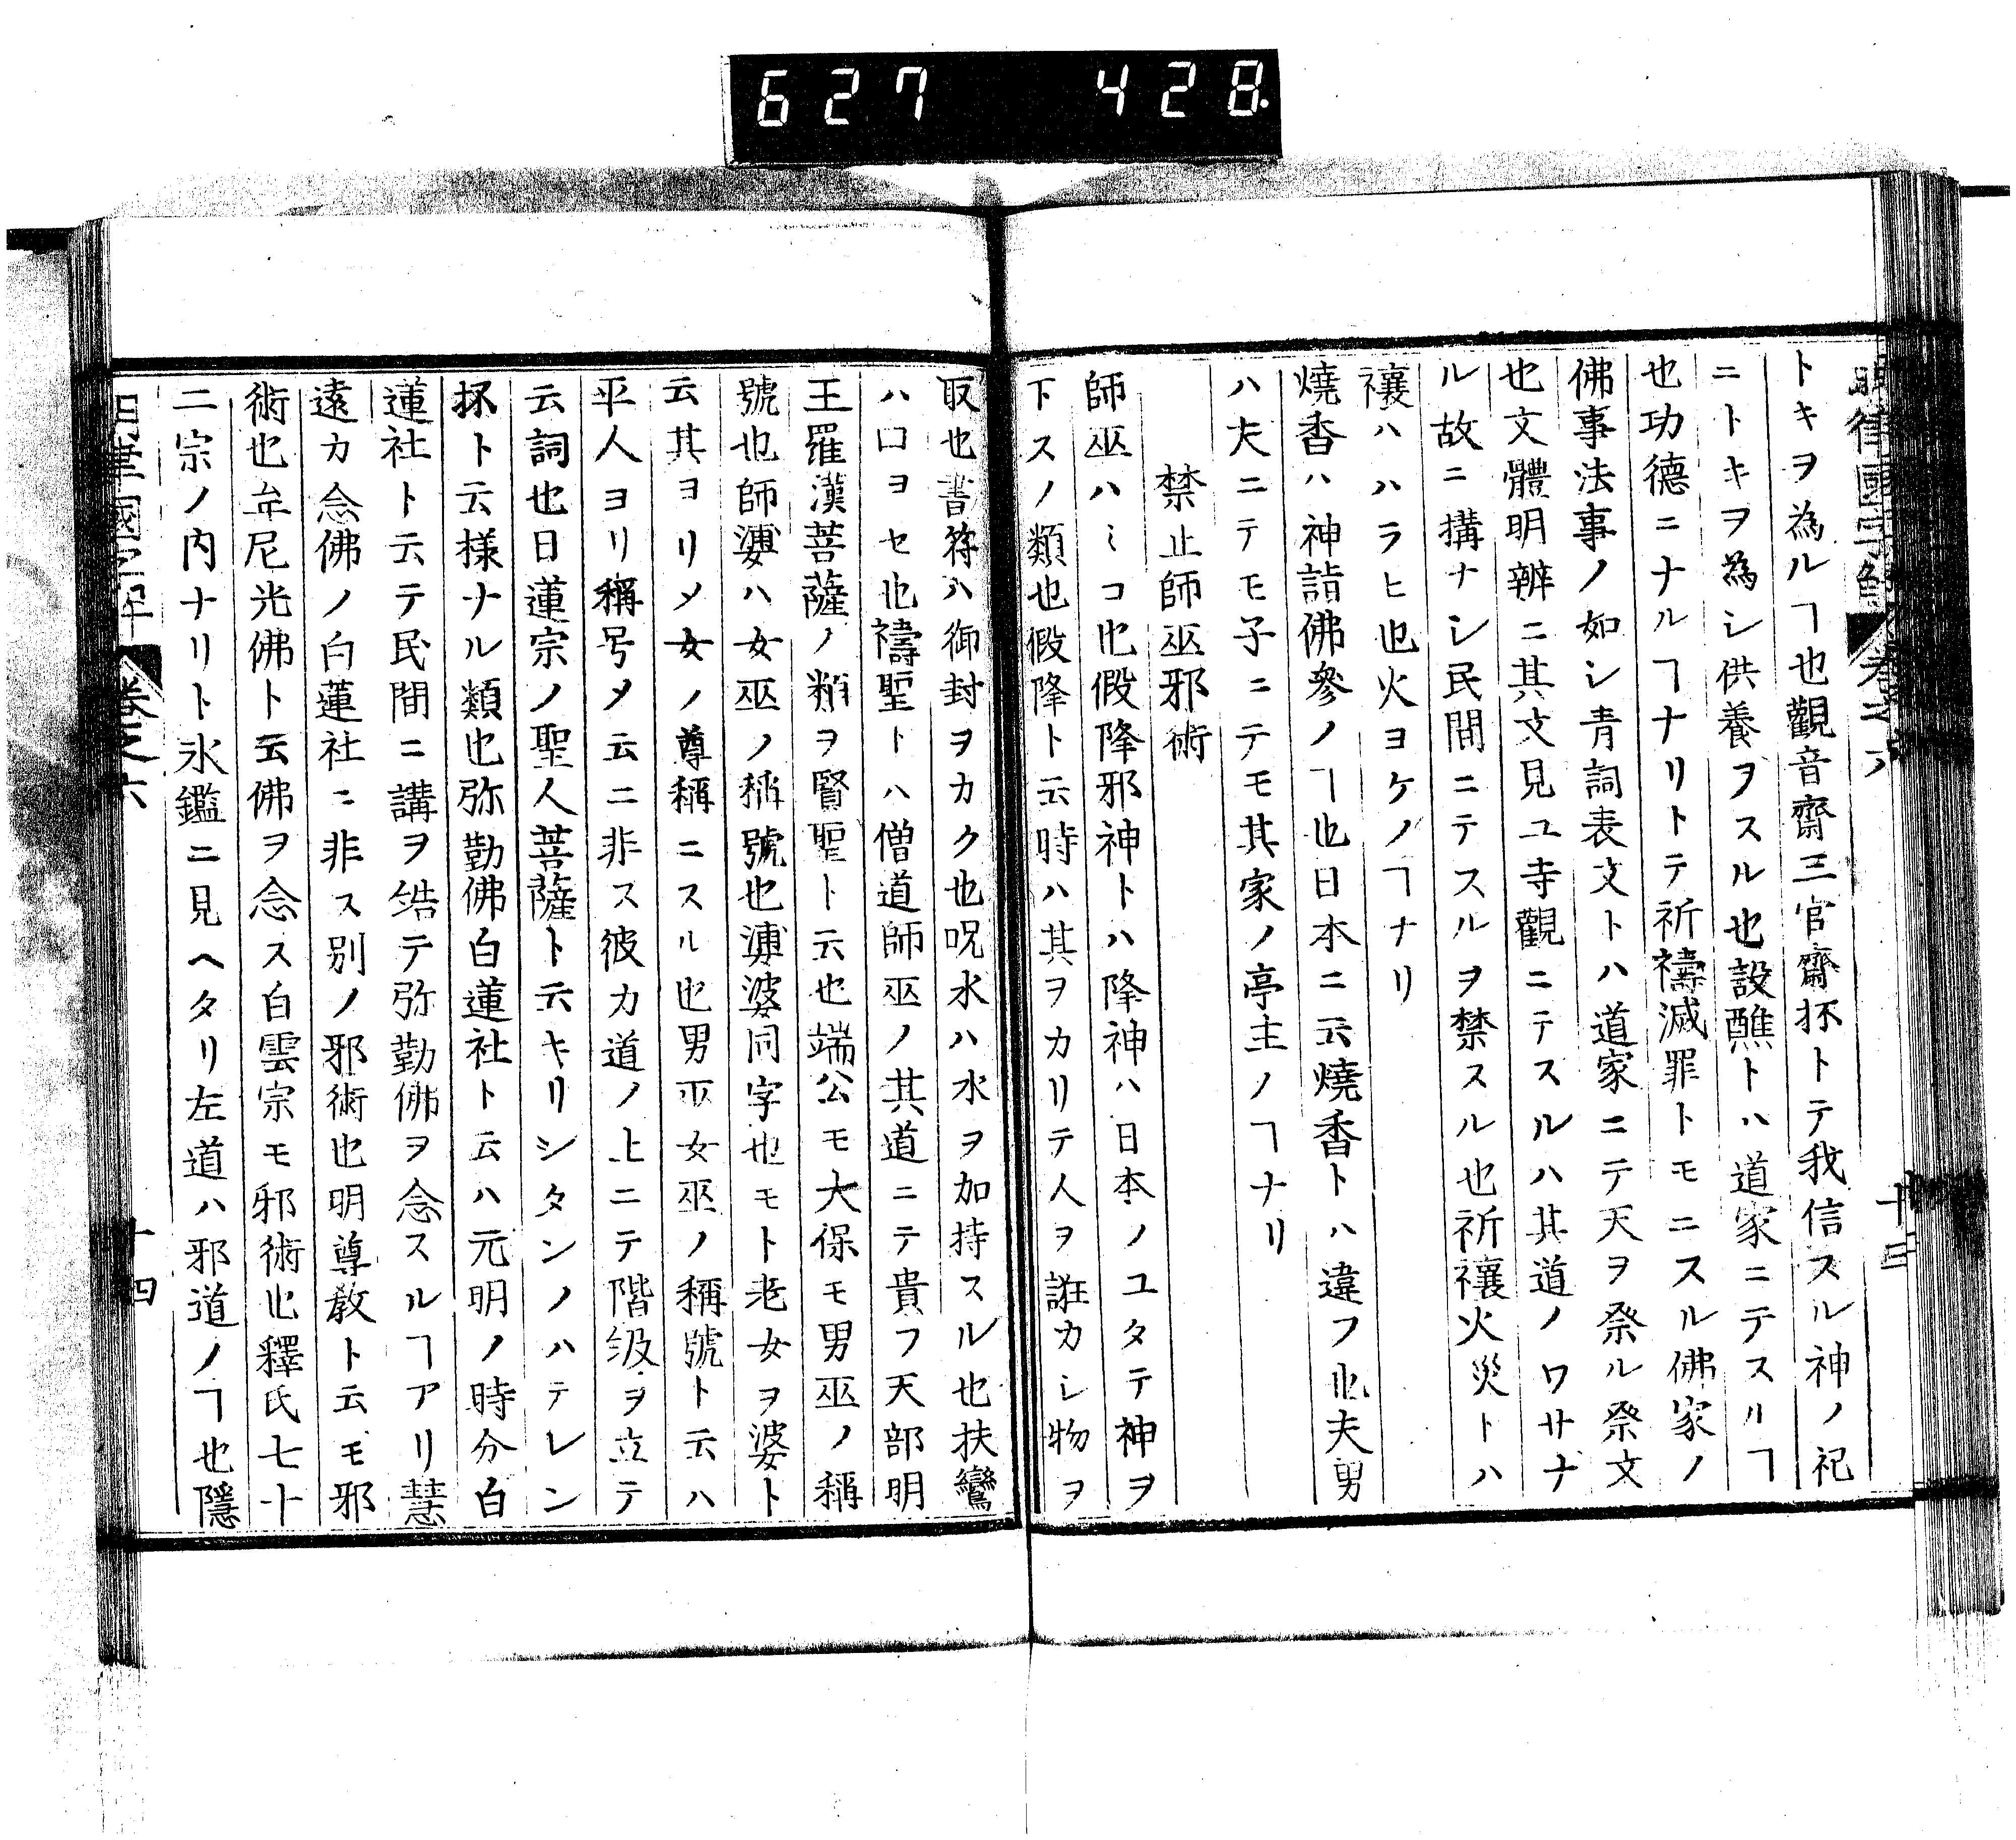 627 428
トキヲ為ルヿ也觀音齋三官齋抔トテ我信スル神ノ祀
ニトキヲ為シ供養ヲスル也設醮トハ道家ニテスルヿ
也功德ニナルヿナリトテ祈禱滅罪トモニスル佛家ノ
佛事法事ノ如シ青詞表文トハ道家ニテ天ヲ祭ル祭文
也文體明辨ニ其文見ユ寺觀ニテスルハ其道ノワサナ
ル故ニ搆ナシ民間ニテスルヲ禁スル也祈禳火災トハ
禳ハハラヒ也火ヨケノヿナリ
燒香ハ神詣佛參ノヿ也日本ニ云燒香トハ違フ也夫男
ハ夫ニテモ子ニテモ其家ノ亭主ノヿナリ
禁止師巫邪術
師巫ハミコ也假降邪神トハ降神ハ日本ノユタテ神ヲ
下スノ類也假降ト云時ハ其ヲカリテ人ヲ誑カシ物ヲ
取也書符ハ御封ヲカク也呪水ハ水ヲ加持スル也扶鸞
ハ口ヨセ也禱聖トハ僧道師巫ノ其道ニテ貴フ天部明
王羅漢菩薩ノ類ヲ賢聖ト云也端公モ大保モ男巫ノ稱
號也師婆ハ女巫ノ稱號也婆同字也モト老女ヲ婆ト
云其ヨリメ女ノ尊稱ニスル也男巫女巫ノ稱號ト云ハ
平人ヨリ稱号メ云ニ非ス彼カ道ノ上ニテ階級ヲ立テ
云詞也日蓮宗ノ聖人菩薩ト云キリシタンノハテレン
抔ト云樣ナル類也弥勤佛白蓮社ト云ハ元明ノ時分白
蓮社ト云テ民間ニ講ヲ結テ弥勤佛ヲ念スルヿアリ慧
遠カ念佛ノ白蓮社ニ非ス別ノ邪術也明尊教ト云モ邪
術也牟尼光佛ト云佛ヲ念ス白雲宗モ邪術也釋氏七十
二宗ノ内ナリト氷鑑ニ見ヘタリ左道ハ邪道ノヿ也隱
卷之六
十四